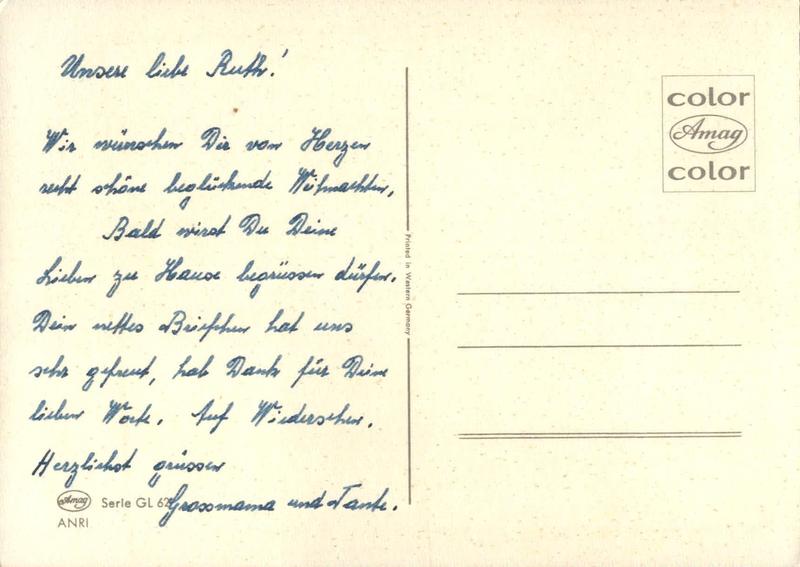 Unsere liebe Ruth!
Wir wünschen Dir von Herzen
recht schöne beglückende Weihnachten,
Bald wirst Du Deine
Lieben zu Hause begrüssen dürfen.
Dein nettes Briefchen hat uns
sehr gefreut, hab Dank für Deine
lieben Worte. Auf Wiedersehen.
Herzlichst grüssen
Grossmama und Tante.
Amag
Serie GL 62
ANRI
Printed in Western Germany
color
Amag
color